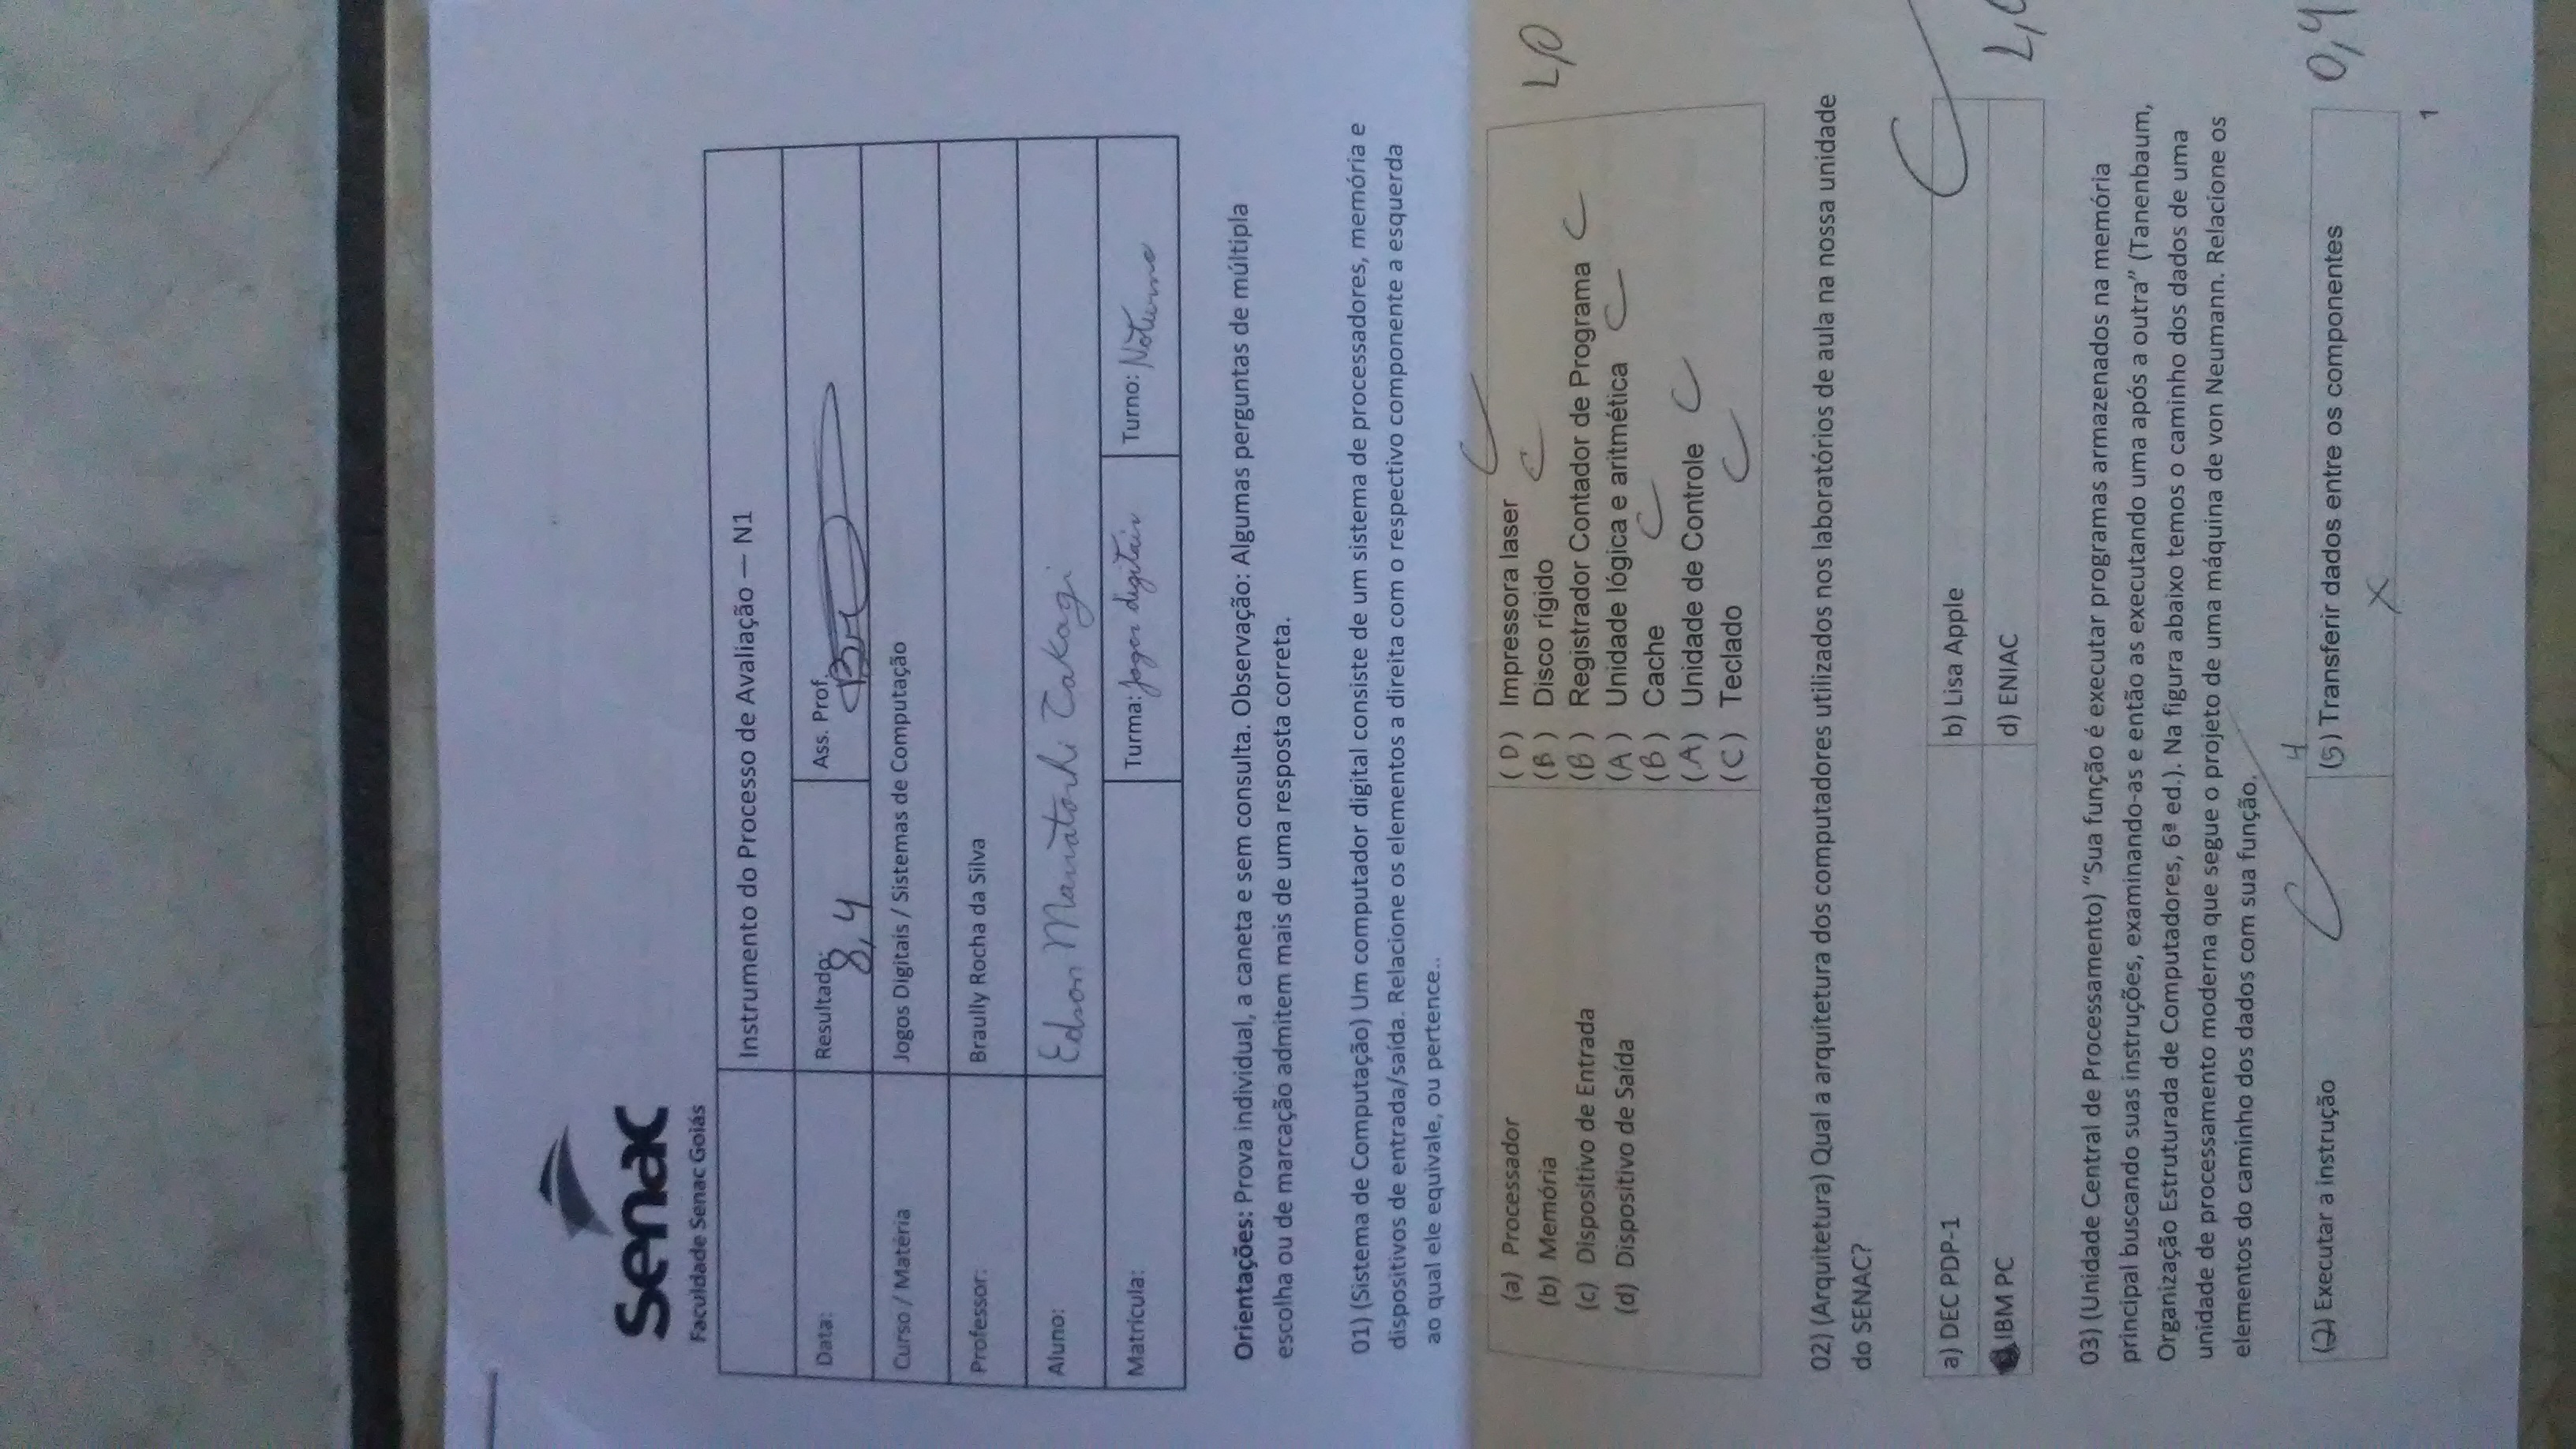 senac
Faculdade Senac Goiás
Instrumento do Processo de Avaliação — N1
Data:
Resultado: 8,4
Ass. Prof.
Curso / Matéria
Jogos Digitais / Sistemas de Computação
Professor:
Braully Rocha da Silva
Aluno:
Edson Manatoshi Takagi
Matrícula:
Turma: Jogos digitais
Turno: Noturno
Orientações: Prova individual, a caneta e sem consulta. Observação: Algumas perguntas de múltipla
escolha ou de marcação admitem mais de uma resposta correta.
01) (Sistema de Computação) Um computador digital consiste de um sistema de processadores, memória e
dispositivos de entrada/saída. Relacione os elementos a direita com o respectivo componente a esquerda
ao qual ele equivale, ou pertence..
(a) Processador
(b) Memória
(c) Dispositivo de Entrada
(d) Dispositivo de Saída
(D) Impressora laser C
(B) Disco rígido C
(B) Registrador Contador de Programa C
(A) Unidade lógica e aritmética C
(B) Cache C
(A) Unidade de Controle C
(C) Teclado C
1,0
02) (Arquitetura) Qual a arquitetura dos computadores utilizados nos laboratórios de aula na nossa unidade
do SENAC?
a) DEC PDP-1
b) Lisa Apple C
IBM PC
d) ENIAC
1,0
03) (Unidade Central de Processamento) “Sua função é executar programas armazenados na memória
principal buscando suas instruções, examinando-as e então as executando uma após a outra” (Tanenbaum,
Organização Estruturada de Computadores, 6ª ed.). Na figura abaixo temos o caminho dos dados de uma
unidade de processamento moderna que segue o projeto de uma máquina de von Neumann. Relacione os
elementos do caminho dos dados com sua função.
(2) Executar a instrução C
4
(5) Transferir dados entre os componentes
X
0,4
1